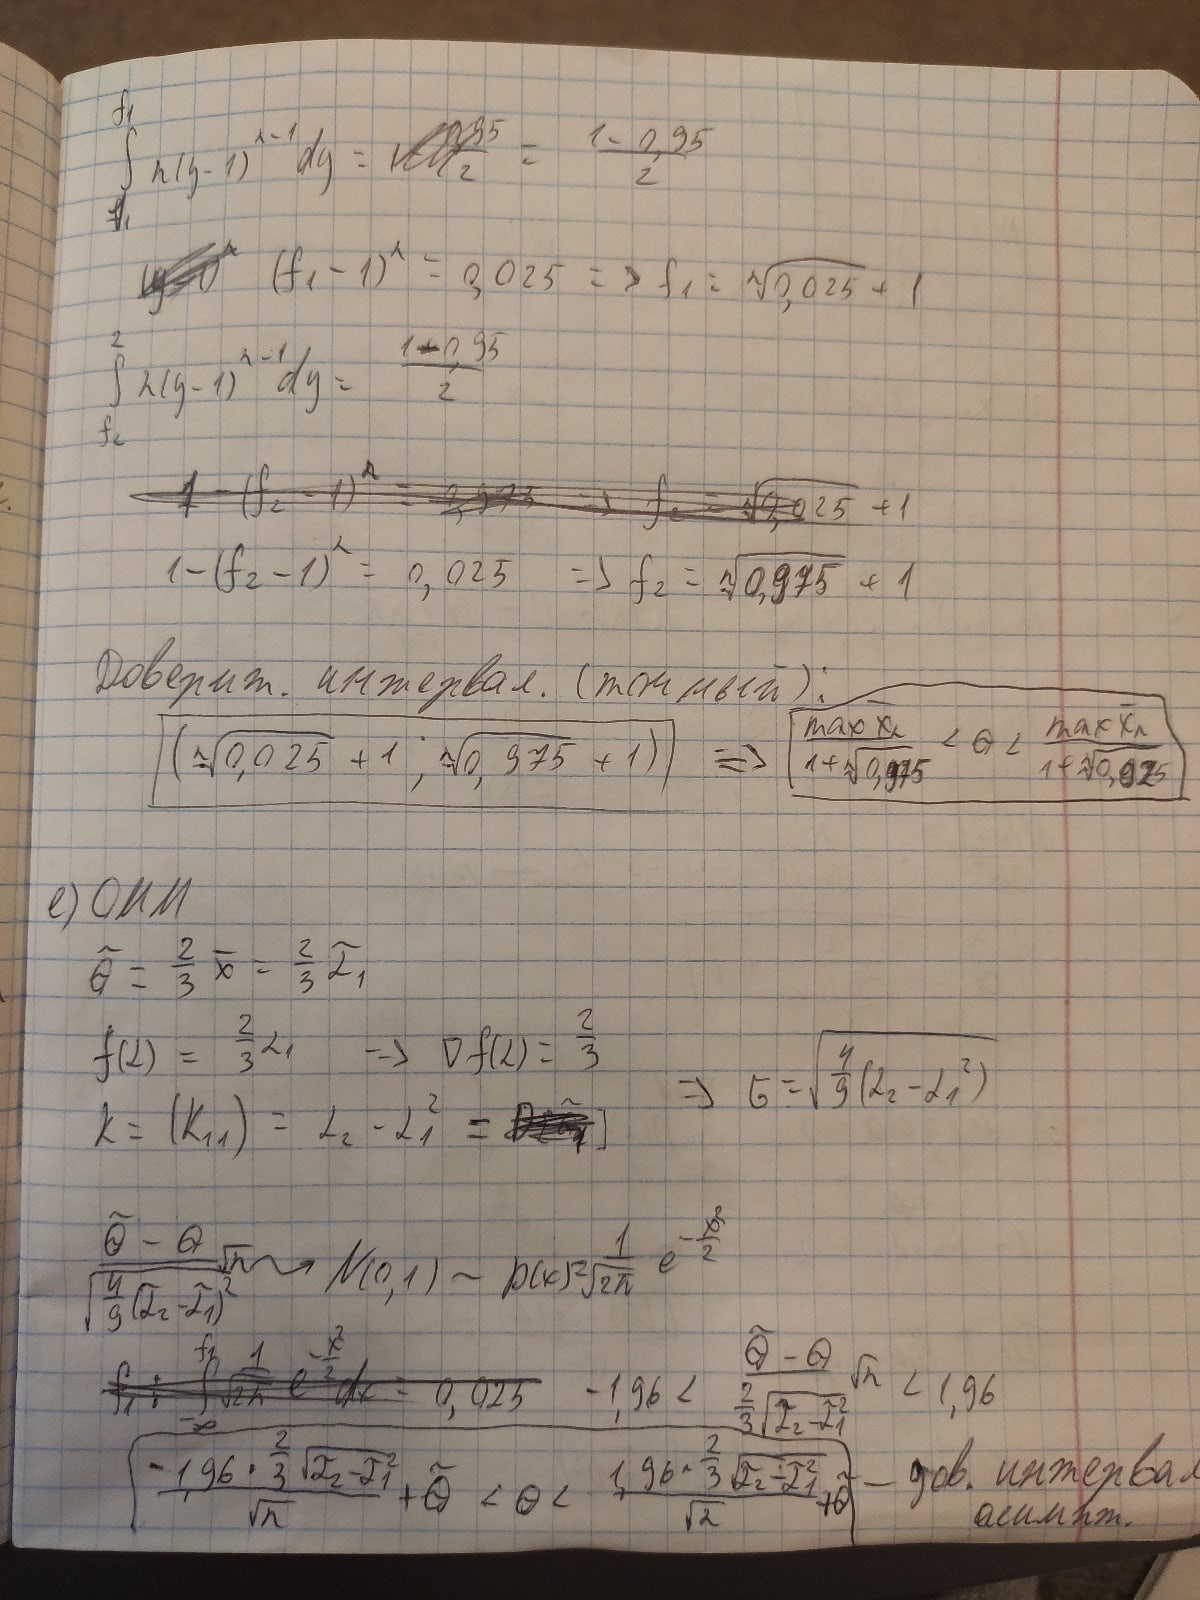 ∫_{f₁}^{f₁} n(y-1)^{n-1} dy = 0,95/2 = (1-0,95)/2
(f₁-1)ⁿ = 0,025 => f₁ = ⁿ√0,025 + 1
∫_{f₂}^{2} n(y-1)^{n-1} dy = (1-0,95)/2
1-(f₂-1)ⁿ = 0,975 => f₂ = ⁿ√0,025 + 1
1-(f₂-1)ⁿ = 0,025 => f₂ = ⁿ√0,975 + 1
Доверит. интервал. (точный):
(ⁿ√0,025 + 1 ; ⁿ√0,975 + 1) => max x̄ₙ/(1+ⁿ√0,975) < θ < max x̄ₙ/(1+ⁿ√0,025)
e) ОММ
θ̃ = 2/3 x̄ = 2/3 α̃₁
f(α) = 2/3 α₁ => ∇f(α) = 2/3
K = (K₁₁) = α₂ - α₁² = => σ = √(4/9(α₂-α₁²))
(θ̃ - θ)/√(4/9(α̃₂-α̃₁)²) √n ⇝ N(0,1) ~ p(x) = 1/√2π e^{-x²/2}
f₁: ∫_{-∞}^{f₁} 1/√2π e^{-x²/2} dx = 0,025 -1,96 < (θ̃ - θ)/(2/3 √(α̃₂-α̃₁²)) √n < 1,96
(-1,96 · 2/3 √(α̃₂-α̃₁²))/√n + θ̃ < θ < (1,96 · 2/3 √(α̃₂-α̃₁²))/√n + θ̃ - дов. интервал
асимпт.